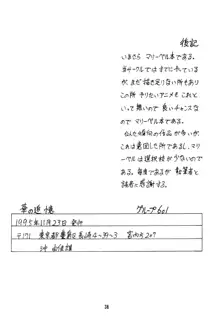 後記
いまさら マリーベル本である。
当サークルでは すでに行っている
が、まだ描き足りない所もあり
この所 やりたいアニメも これと
いって無いので 良いチャンスな
ので マリーベル本である。
似た傾向の作品が多いが
これは意図した所であるし、マリー
ベルは選択枝が少ないので
である。毎度であるが 執筆者と
読者に感謝する。
華の追憶 グループ601
1995年11月23日 発行
〒171 東京都豊島区長崎4-39-3
38